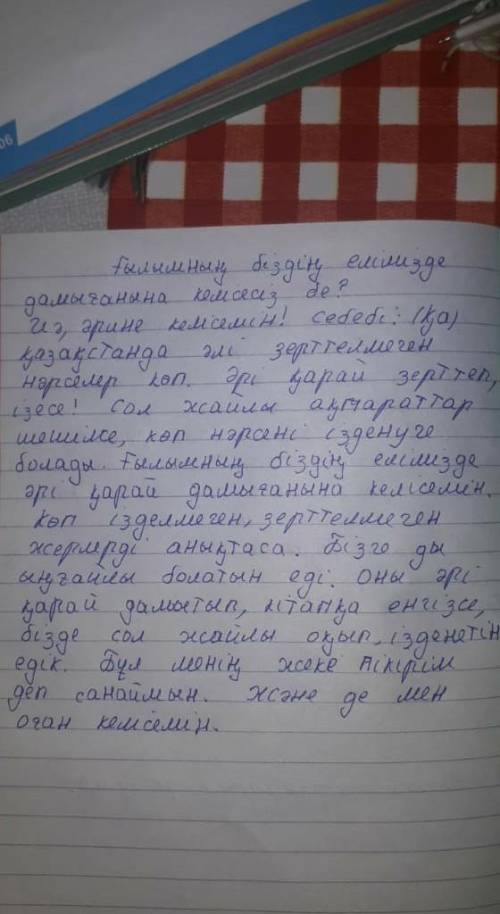 06
Ғылымның біздің елімізде
дамығанына келісесіз бе?
Иә, әрине келісемін! Себебі: (Қа)
Қазақстанда әлі зерттелмеген
нәрселер көп. Әрі қарай зерттеп,
ізесе! Сол жайлы ақпараттар
шешилсе, көп нәрсені ізденуге
болады. Ғылымның біздің елімізде
әрі қарай дамығанына келісемін.
Көп ізделмеген, зерттелмеген
жерлерді анықтаса. Бізге ды
ыңғайлы болатын еді. Оны әрі
қарай дамытып, кітапқа енгізсе,
бізде сол жайлы оқып, ізденетін
едік. Бұл менің жеке пікірім
деп санаймын. Және де мен
оған келісемін.